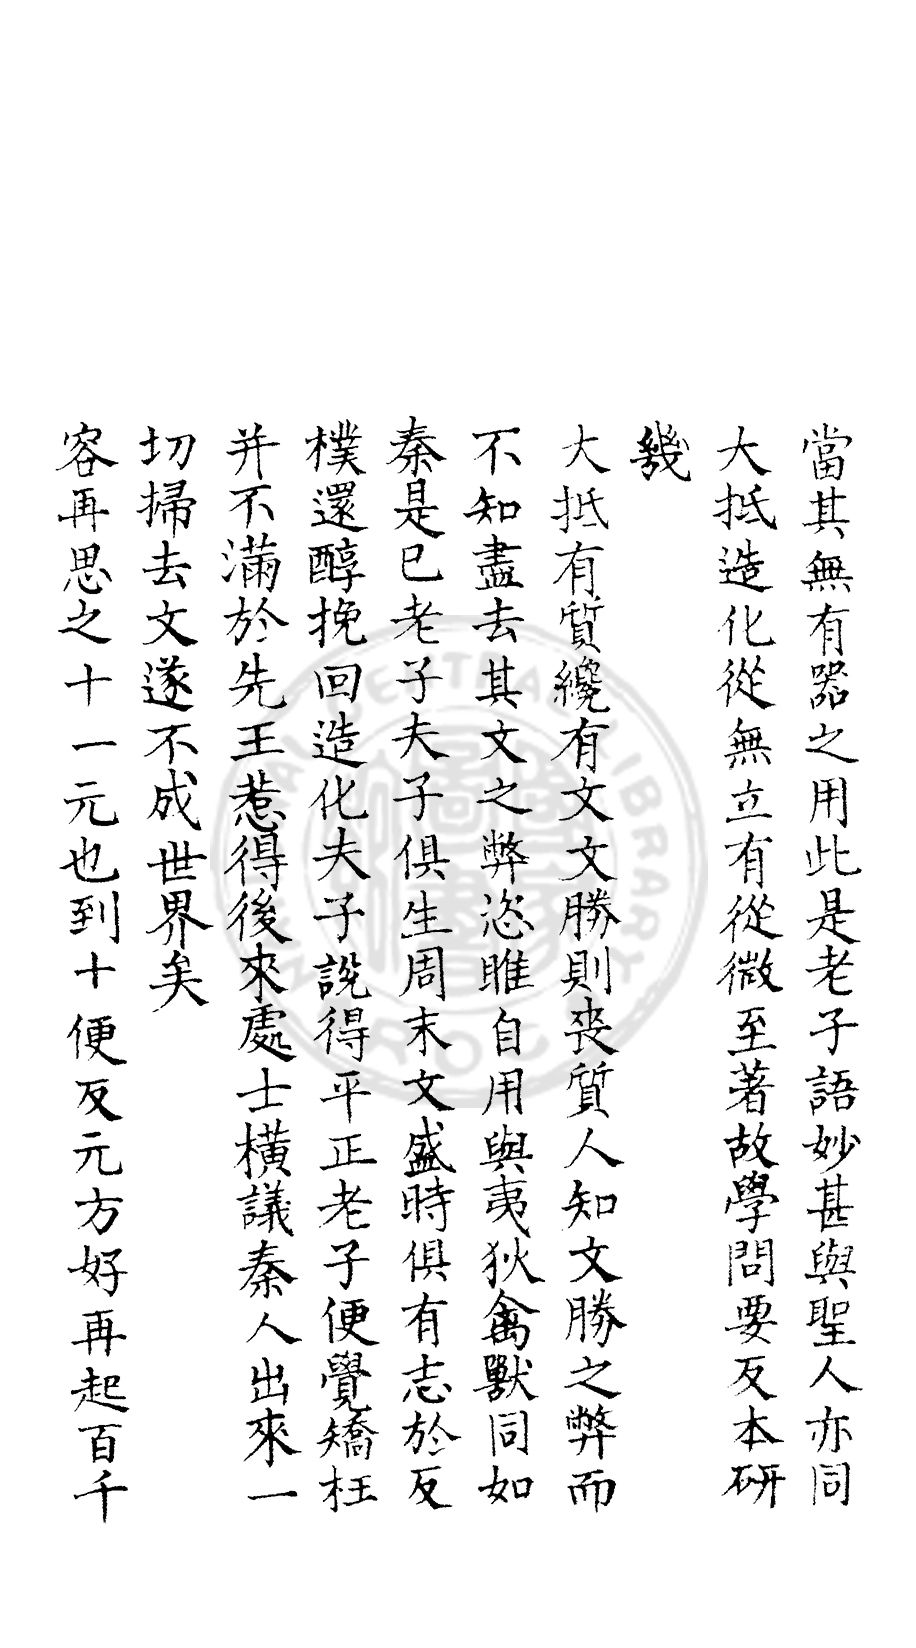 當其無有器之用此是老子語妙甚與聖人亦同
大抵造化從無立有從微至著故學問要反本研
幾
大抵有質纔有文文勝則喪質人知文勝之弊而
不知盡去其文之弊恣睢自用與夷狄禽獸同如
秦是已老子夫子俱生周末文盛時俱有志於反
樸還醇挽回造化夫子說得平正老子便覺矯枉
并不滿於先王惹得後來處士橫議秦人出來一
切掃去文遂不成世界矣
容再思之十一元也到十便反元方好再起百千
NATIONAL CENTRAL LIBRARY
R.O.C.